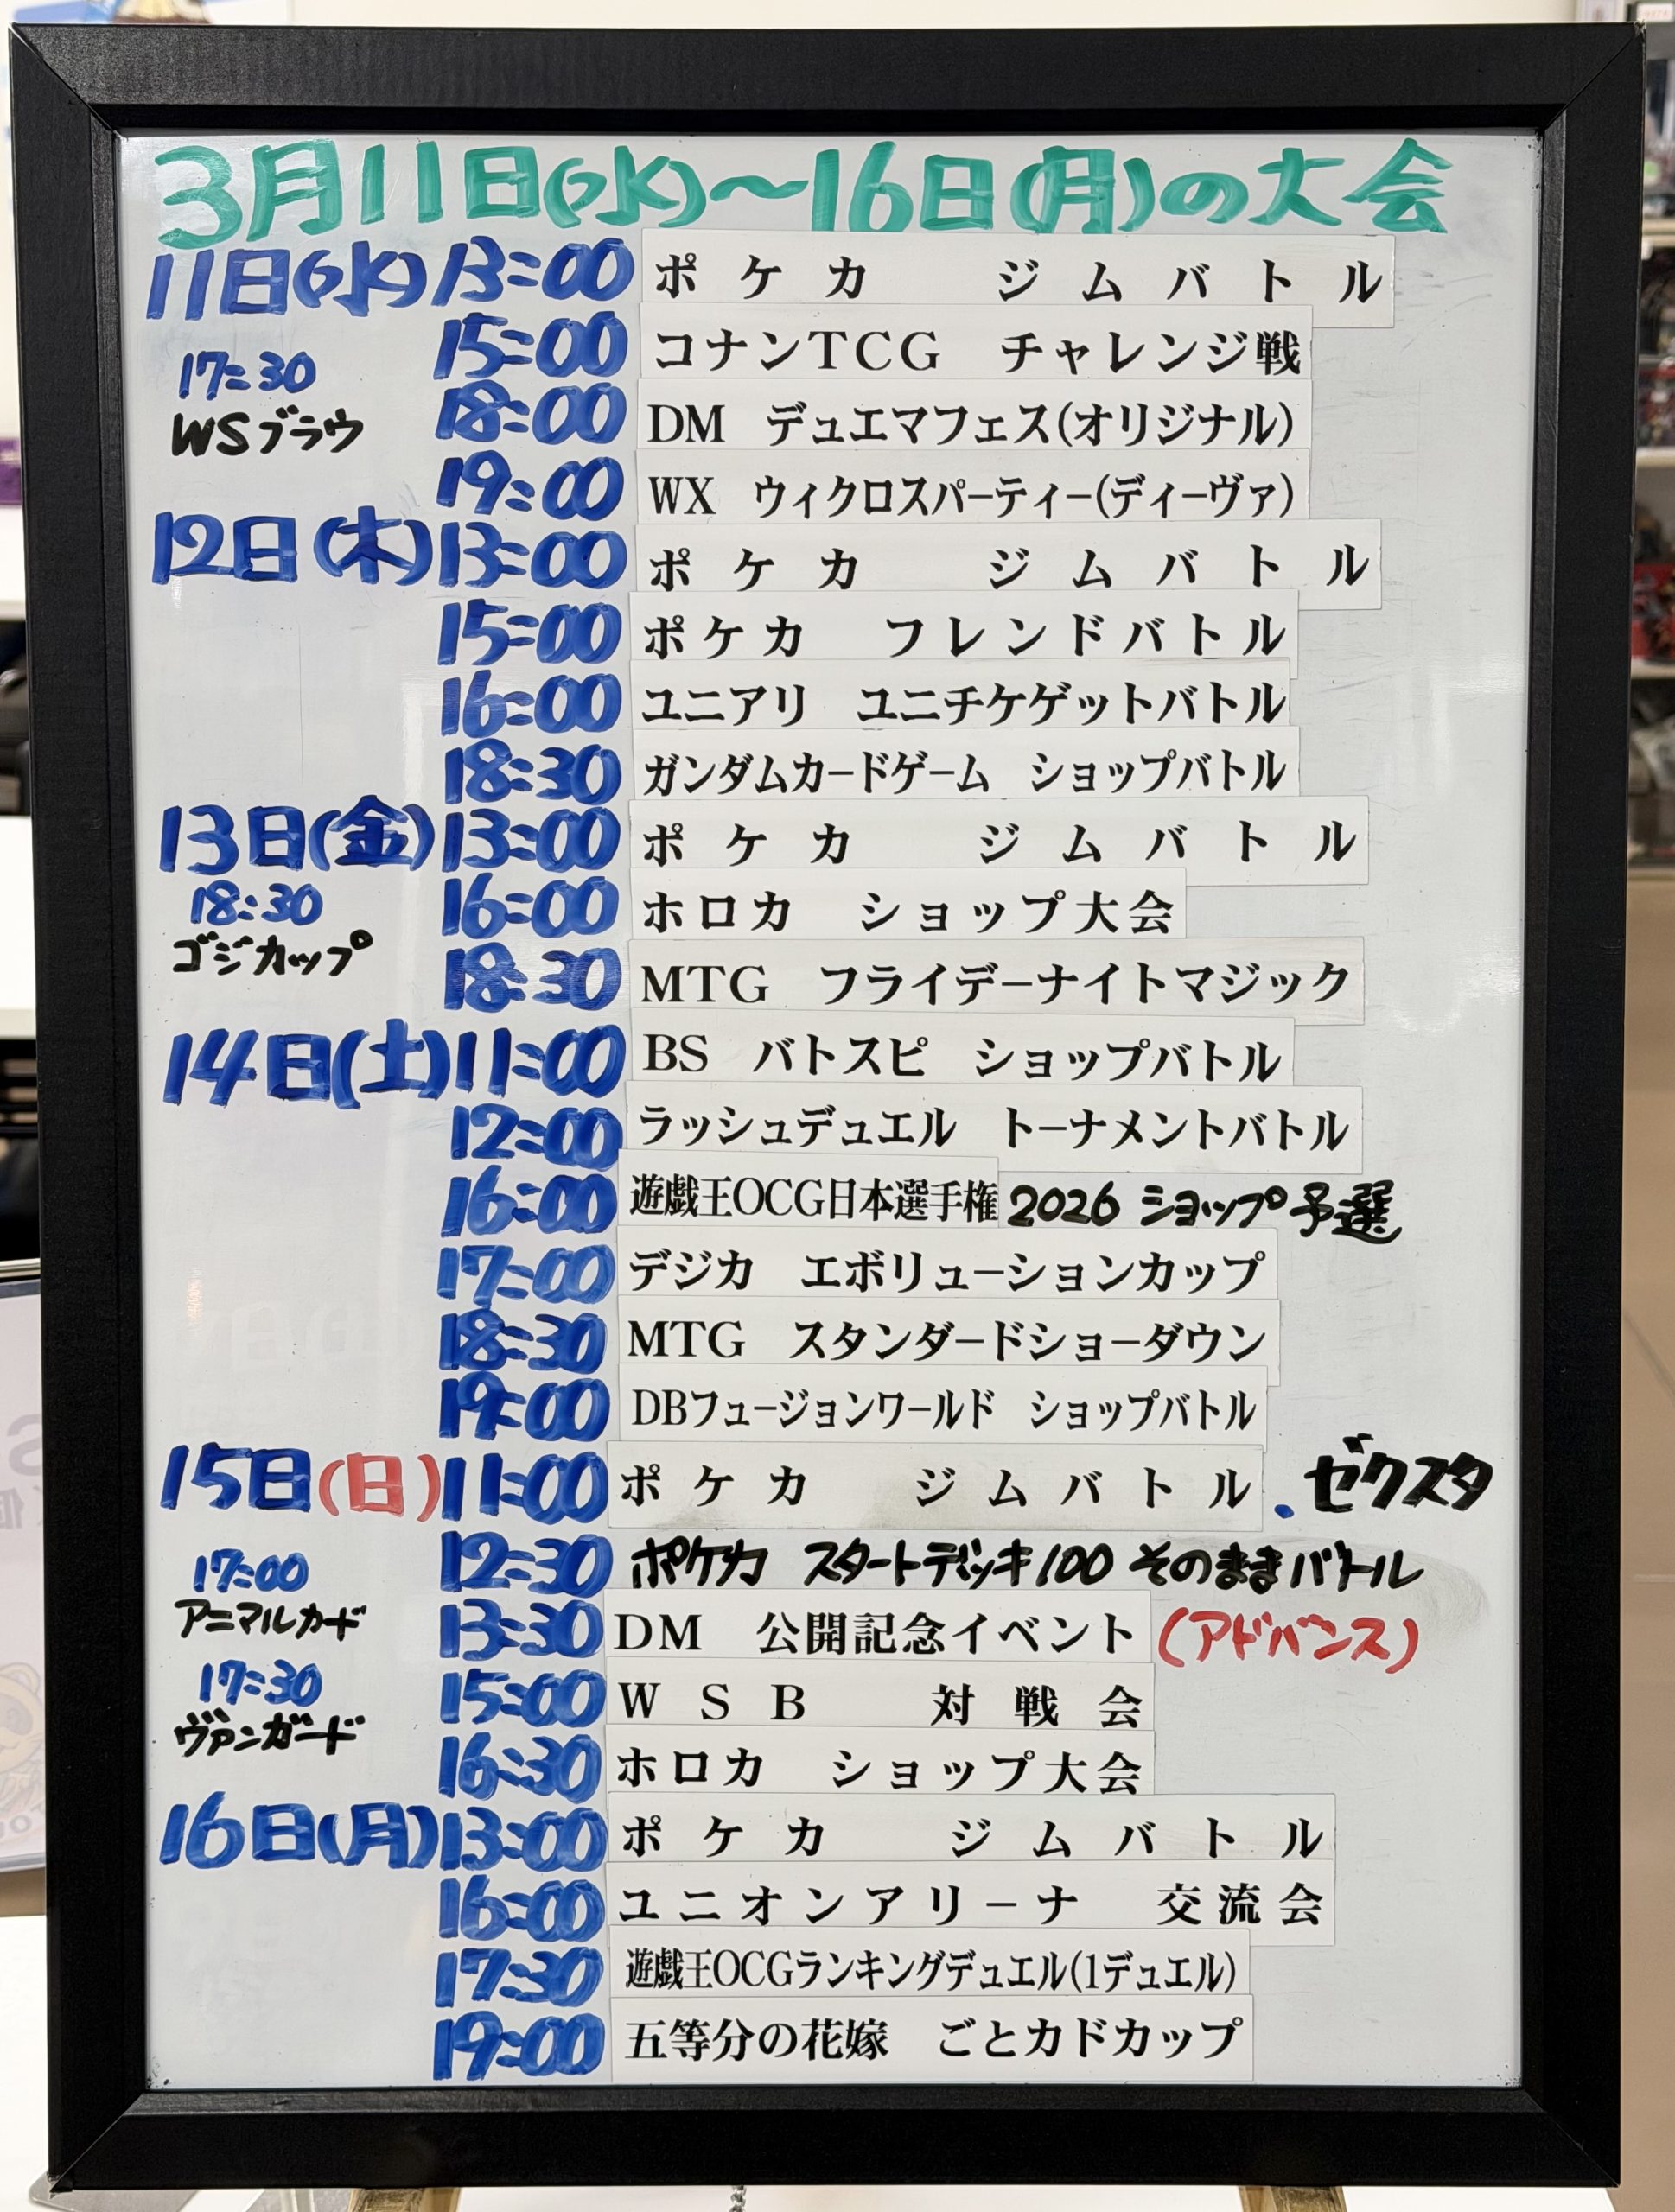 3月11日(水)〜16日(月)の大会
11日(水) 13:00 ポケカ ジムバトル
15:00 コナンTCG チャレンジ戦
17:30
WSブラウ
18:00 DM デュエマフェス(オリジナル)
19:00 WX ウィクロスパーティー(ディーヴァ)
12日(木) 13:00 ポケカ ジムバトル
15:00 ポケカ フレンドバトル
16:00 ユニアリ ユニチケゲットバトル
18:30 ガンダムカードゲーム ショップバトル
13日(金) 13:00 ポケカ ジムバトル
16:00 ホロカ ショップ大会
18:30
ゴジカップ
18:30 MTG フライデーナイトマジック
14日(土) 11:00 BS バトスピ ショップバトル
12:00 ラッシュデュエル トーナメントバトル
16:00 遊戯王OCG日本選手権 2026 ショップ予選
17:00 デジカ エボリューションカップ
18:30 MTG スタンダードショーダウン
19:00 DBフュージョンワールド ショップバトル
15日(日) 11:00 ポケカ ジムバトル . ゼクスタ
12:30 ポケカ スタートデッキ100 そのままバトル
17:00
アニマルカード
13:30 DM 公開記念イベント (アドバンス)
17:30
ヴァンガード
15:00 WSB 対戦会
16:30 ホロカ ショップ大会
16日(月) 13:00 ポケカ ジムバトル
16:00 ユニオンアリーナ 交流会
17:30 遊戯王OCGランキングデュエル(1デュエル)
19:00 五等分の花嫁 ごとカドカップ